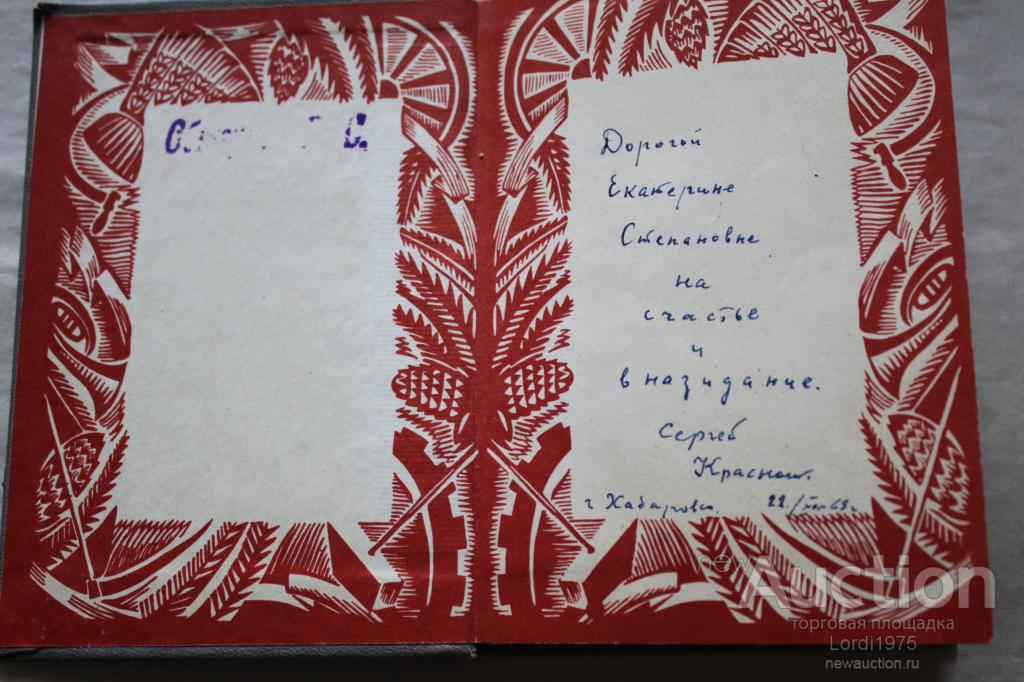 С.
Дорогой
Екатерине
Степановне
на
счастье
и
в назидание.
Сергей
г. Хабаровск. 22.
newAuction
торговая площадка
Lordi1975
newauction.ru